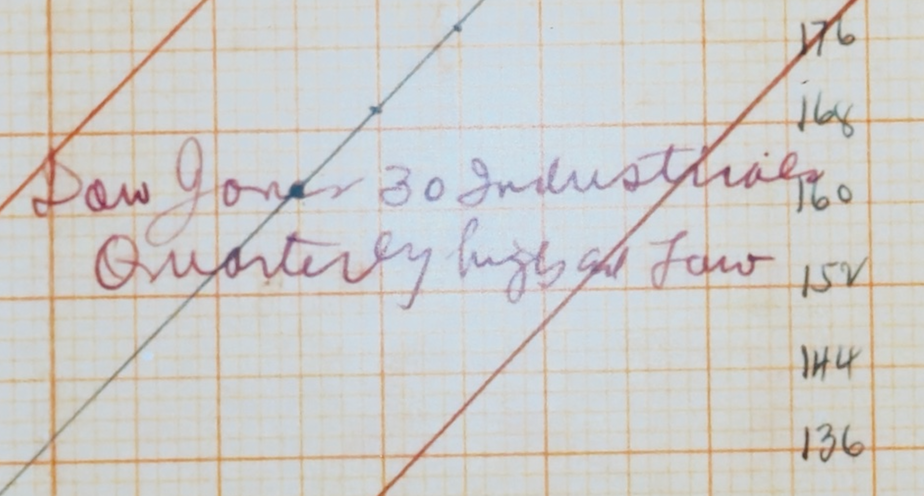 176
168
Dow Jones 30 Industrials
160
Quarterly high and Low
152
144
136